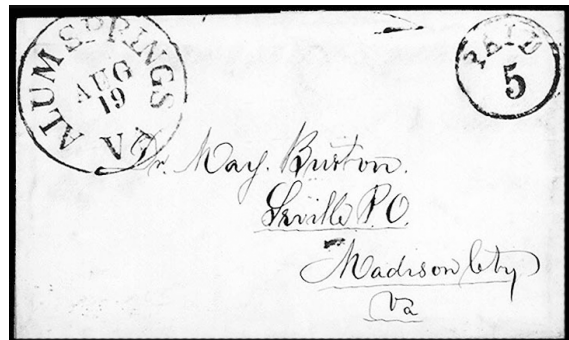 ALUM SPRINGS VA
AUG
19
PAID
5
Mr. May. Burton.
Seville P.O.
Madison Cty
Va